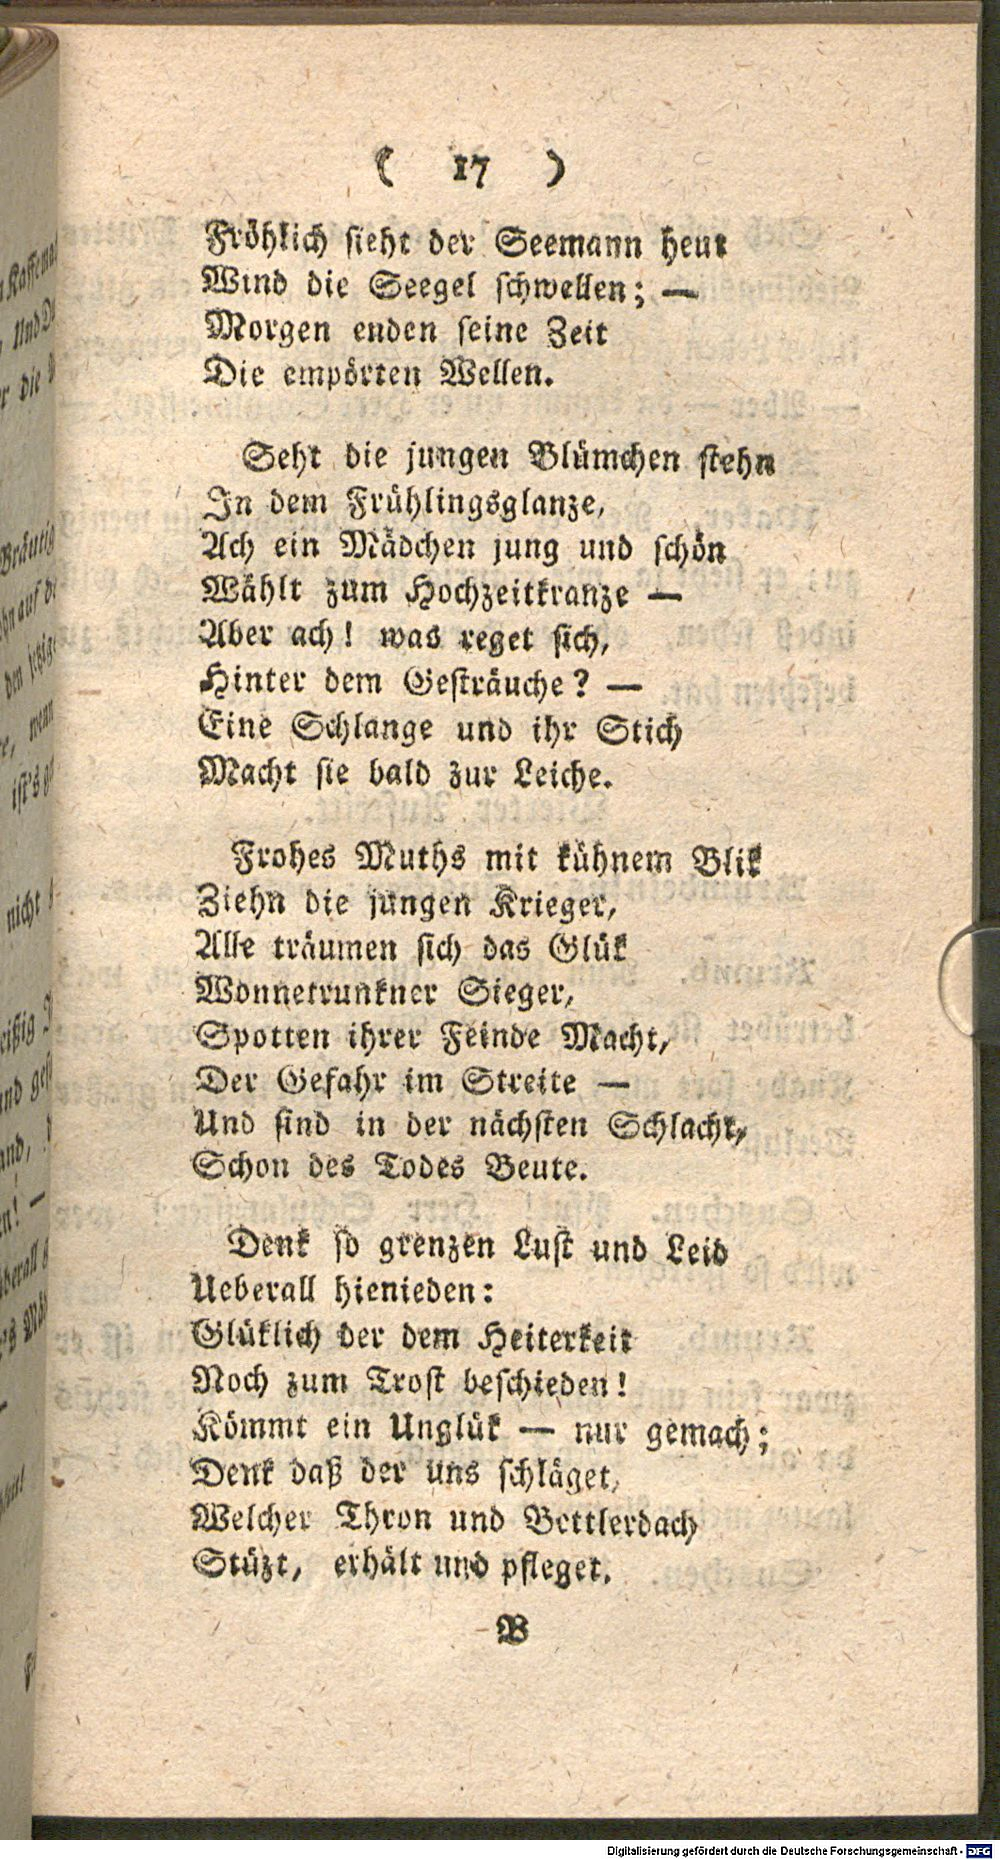 ( 17 )
Fröhlich sieht der Seemann heut
Wind die Seegel schwellen; —
Morgen enden seine Zeit
Die empörten Wellen.
Seht die jungen Blümchen stehn
In dem Frühlingsglanze,
Ach ein Mädchen jung und schön
Wählt zum Hochzeitkranze —
Aber ach! was reget sich,
Hinter dem Gesträuche? —
Eine Schlange und ihr Stich
Macht sie bald zur Leiche.
Frohes Muths mit kühnem Blik
Ziehn die jungen Krieger,
Alle träumen sich das Glük
Wonnetrunkner Sieger,
Spotten ihrer Feinde Macht,
Der Gefahr im Streite —
Und sind in der nächsten Schlacht,
Schon des Todes Beute.
Denk so grenzen Lust und Leid
Ueberall hienieden:
Glüklich der dem Heiterkeit
Noch zum Trost beschieden!
Kömmt ein Unglük — nur gemach;
Denk daß der uns schläget,
Welcher Thron und Bettlerdach
Stüzt, erhält und pfleget.
B
Digitalisierung gefördert durch die Deutsche Forschungsgemeinschaft - DFG